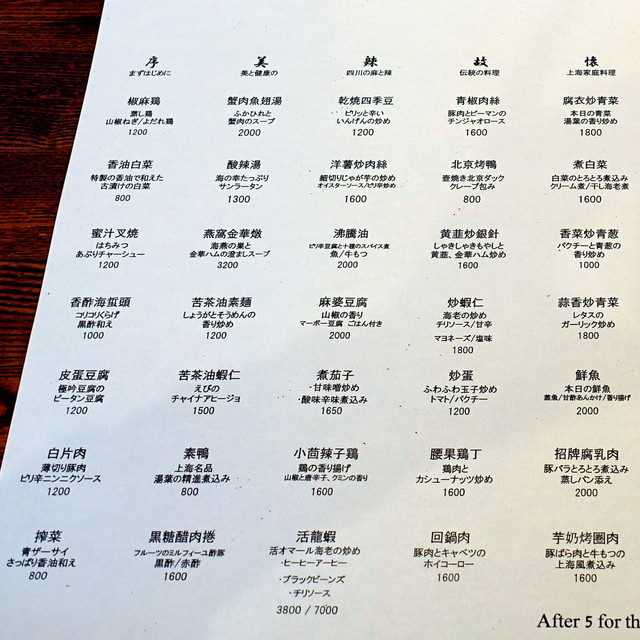 序
まずはじめに
椒麻鶏
蒸し鶏
山椒ねぎ/よだれ鶏
1200
香油白菜
特製の香油で和えた
古漬けの白菜
800
蜜汁叉焼
はちみつ
あぶりチャーシュー
1200
香酢海蜇頭
コリコリくらげ
黒酢和え
1000
皮蛋豆腐
極吟豆腐の
ピータン豆腐
1200
白片肉
薄切り豚肉
ピリ辛ニンニクソース
1200
搾菜
青ザーサイ
さっぱり香油和え
800
美
美と健康の
蟹肉魚翅湯
ふかひれと
蟹肉のスープ
2000
酸辣湯
海の幸たっぷり
サンラータン
1300
燕窩金華燉
海燕の巣と
金華ハムの澄ましスープ
3200
苦茶油素麺
しょうがとそうめんの
香り炒め
1200
苦茶油蝦仁
えびの
チャイナアヒージョ
1500
素鴨
上海名品
湯葉の精進煮込み
800
黒糖醋肉捲
フルーツのミルフィーユ酢豚
黒酢/赤酢
1600
辣
四川の麻と辣
乾焼四季豆
ピリッと辛い
いんげんの炒め
1200
洋薯炒肉絲
細切りじゃが芋の炒め
オイスターソース/ピリ辛炒め
1600
沸騰油
ピリ辛豆腐と十種のスパイス煮
魚/牛もつ
2000
麻婆豆腐
山椒の香り
マーボー豆腐 ごはん付き
2000
煮茄子
・甘味噌炒め
・酸味辛味煮込み
1650
小茴辣子鶏
鶏の香り揚げ
山椒と唐辛子、クミンの香り
1600
活龍蝦
活オマール海老の炒め
・ヒーヒーアーヒー
・ブラックビーンズ
・チリソース
3800 / 7000
故
伝統の料理
青椒肉絲
豚肉とピーマンの
チンジャオロース
1600
北京烤鴨
壺焼き北京ダック
クレープ包み
800
黄韮炒銀針
しゃきしゃきもやしと
黄韮、金華ハム炒め
1600
炒蝦仁
海老の炒め
チリソース/甘辛
マヨネーズ/塩味
1800
炒蛋
ふわふわ玉子炒め
トマト/パクチー
1200
腰果鶏丁
鶏肉と
カシューナッツ炒め
1600
回鍋肉
豚肉とキャベツの
ホイコーロー
1600
懐
上海家庭料理
腐衣炒青菜
本日の青菜
湯葉の香り炒め
1800
煮白菜
白菜のとろとろ煮込み
クリーム煮/干し海老煮
1600
香菜炒青葱
パクチーと青葱の
香り炒め
1000
蒜香炒青菜
レタスの
ガーリック炒め
1800
鮮魚
本日の鮮魚
蒸魚/甘酢あんかけ/香り揚げ
2000
招牌腐乳肉
豚バラとろとろ煮込み
蒸しパン添え
2000
芋奶烤圏肉
豚ばら肉と牛もつの
上海風煮込み
1600
After 5 for th